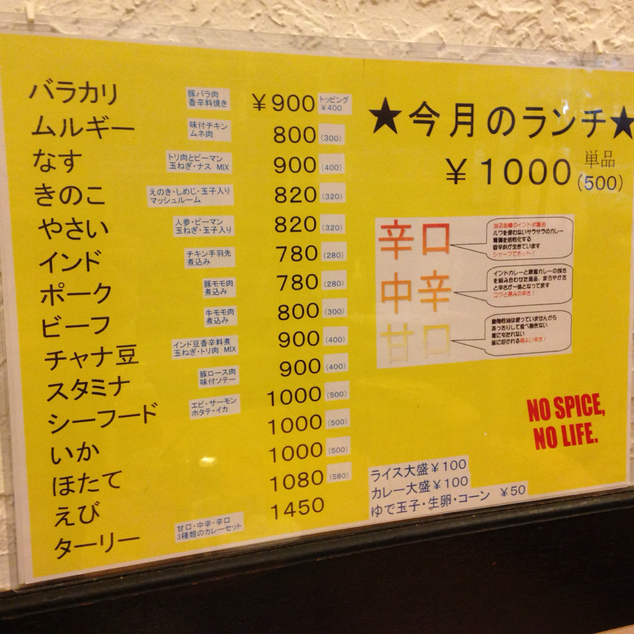 バラカリ 豚バラ肉 香辛料焼き ¥900 トッピング ¥400
ムルギー 味付チキン ムネ肉 800 (300)
なす トリ肉とピーマン 玉ねぎ・ナス MIX 900 (400)
きのこ えのき・しめじ・玉子入り マッシュルーム 820 (320)
やさい 人参・ピーマン 玉ねぎ・玉子入り 820 (320)
インド チキン手羽先 煮込み 780 (280)
ポーク 豚モモ肉 煮込み 780 (280)
ビーフ 牛モモ肉 煮込み 800 (300)
チャナ豆 インド豆香辛料煮 玉ねぎ・トリ肉 MIX 900 (400)
スタミナ 豚ロース肉 味付ソテー 900 (400)
シーフード エビ・サーモン ホタテ・イカ 1000 (500)
いか 1000 (500)
ほたて 1000 (500)
えび 1080 (580)
ターリー 甘口・中辛・辛口 3種類のカレーセット 1450
★今月のランチ★
¥1000 単品 (500)
辛口
ルウを使わないサラサラのカレー
中辛
甘口
NO SPICE,
NO LIFE.
ライス大盛¥100
カレー大盛¥100
ゆで玉子・生卵・コーン ¥50